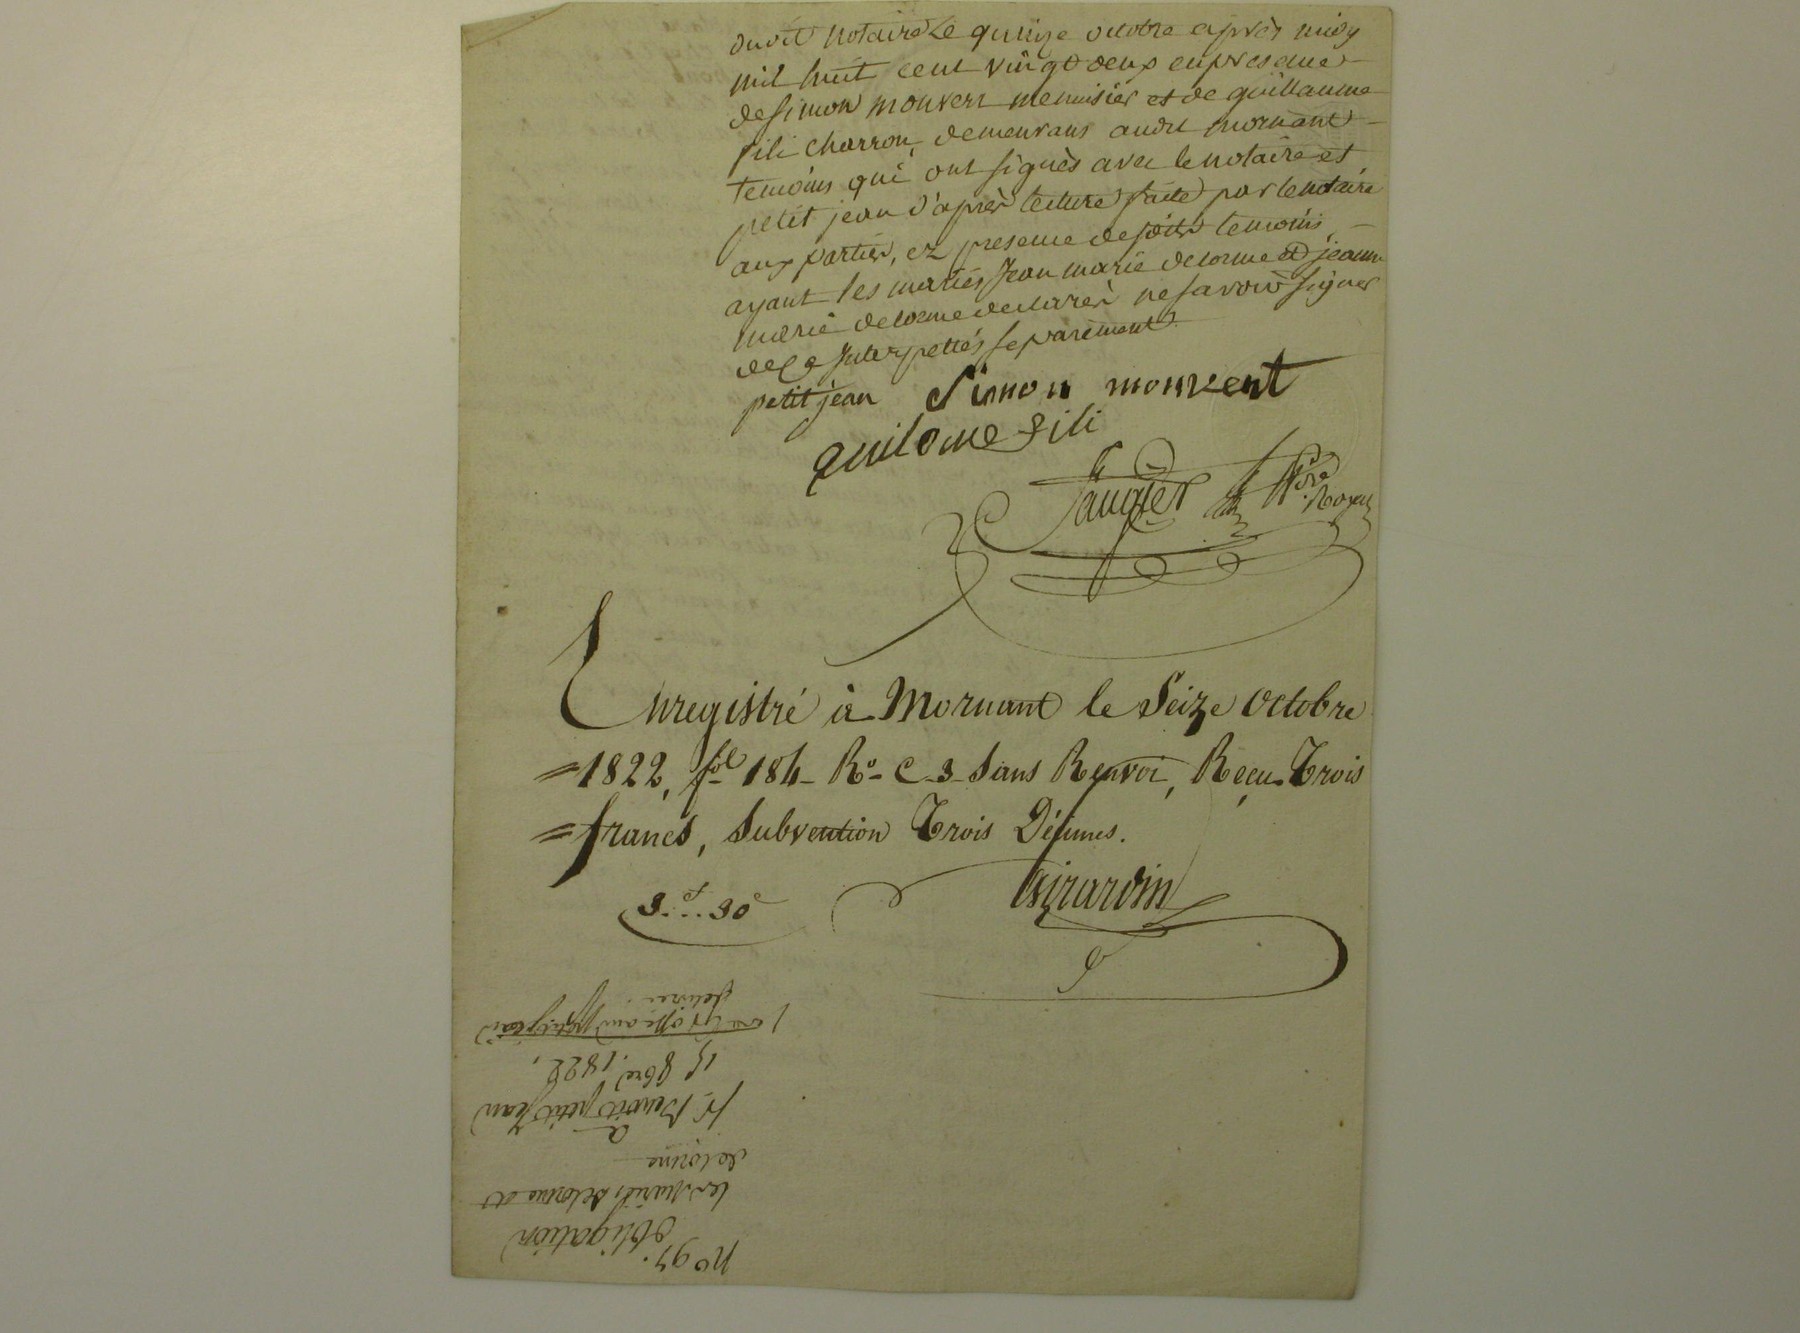 dudit notaire Le quinze octobre après midy
mil huit cent vingt deux en presence
de simon monvent menuisier et de guillaume
fili charron, demeurans audit mornant
temoins qui ont signès avec le notaire et
petit jean d'après lecture faite par le notaire
aux parties, ez presence desdits temoins,
ayant les mariés Jean marie delorme et jeanne
marie delorme declarès ne savoir signer
de ce Interpellés separement
petit jean Simon monvent
guilome fili
Nore Royal
Enregistré à Mornant le Seize Octobre
1822, fol 184 Ro C 3 Sans Renvoi, Reçu Trois
francs, Subvention Trois Décimes.
3f..30c
Girardin
no 97.
obligation
les mariés delorme et
delorme
a
Sr. Benoit petit Jean
15 8bre 1822,